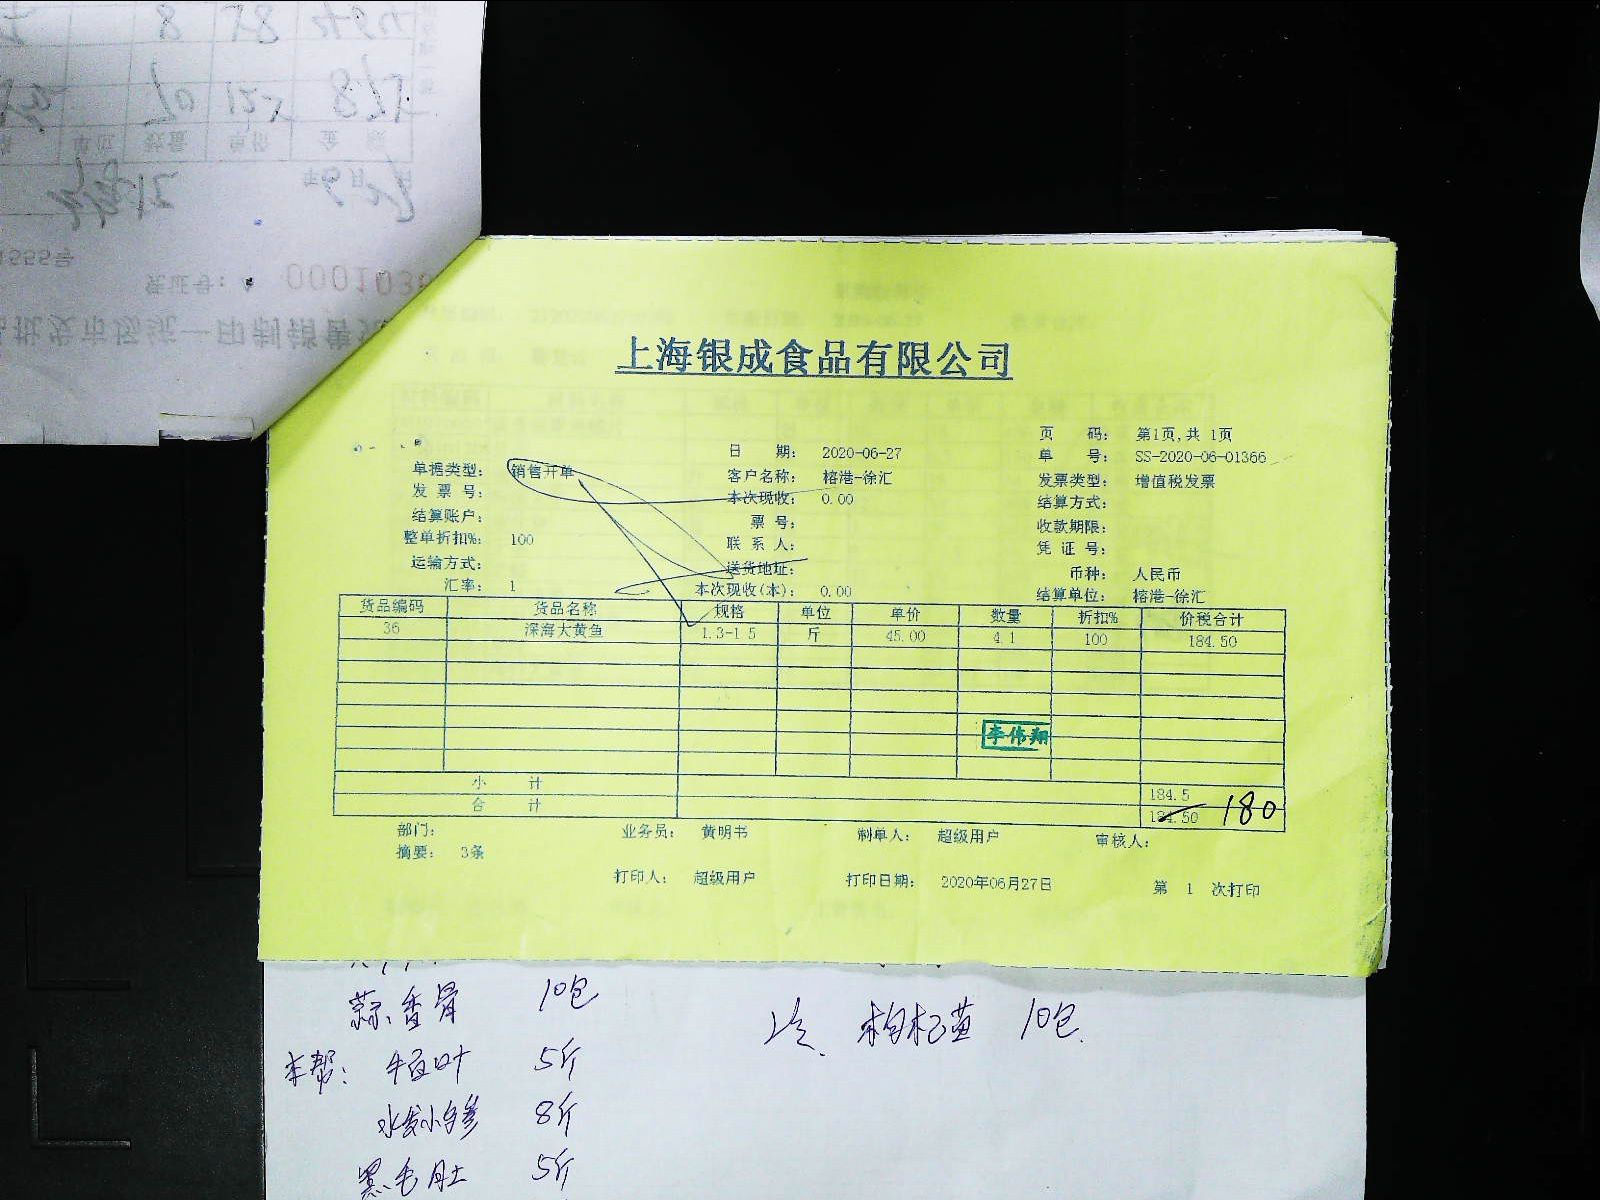 上海银成食品有限公司
页 码: 第1页,共 1页
日 期: 2020-06-27
单 号: SS-2020-06-01366
单据类型: 销售开单
客户名称: 榕港-徐汇
发票类型: 增值税发票
发 票 号:
本次现收: 0.00
结算方式:
结算账户:
票 号:
收款期限:
整单折扣%: 100
联 系 人:
凭 证 号:
运输方式:
送货地址:
币种: 人民币
汇率: 1
本次现收(本): 0.00
结算单位: 榕港-徐汇
货品编码 货品名称 规格 单位 单价 数量 折扣% 价税合计
36 深海大黄鱼 1.3-1 5 斤 45.00 4.1 100 184.50
李伟翔
小 计 184.5
合 计 184.50 180
部门: 业务员: 黄明书 制单人: 超级用户 审核人:
摘要: 3条
打印人: 超级用户 打印日期: 2020年06月27日 第 1 次打印
蒜香骨 10包
枸杞苗 10包
5斤
8斤
黑毛肚 5斤